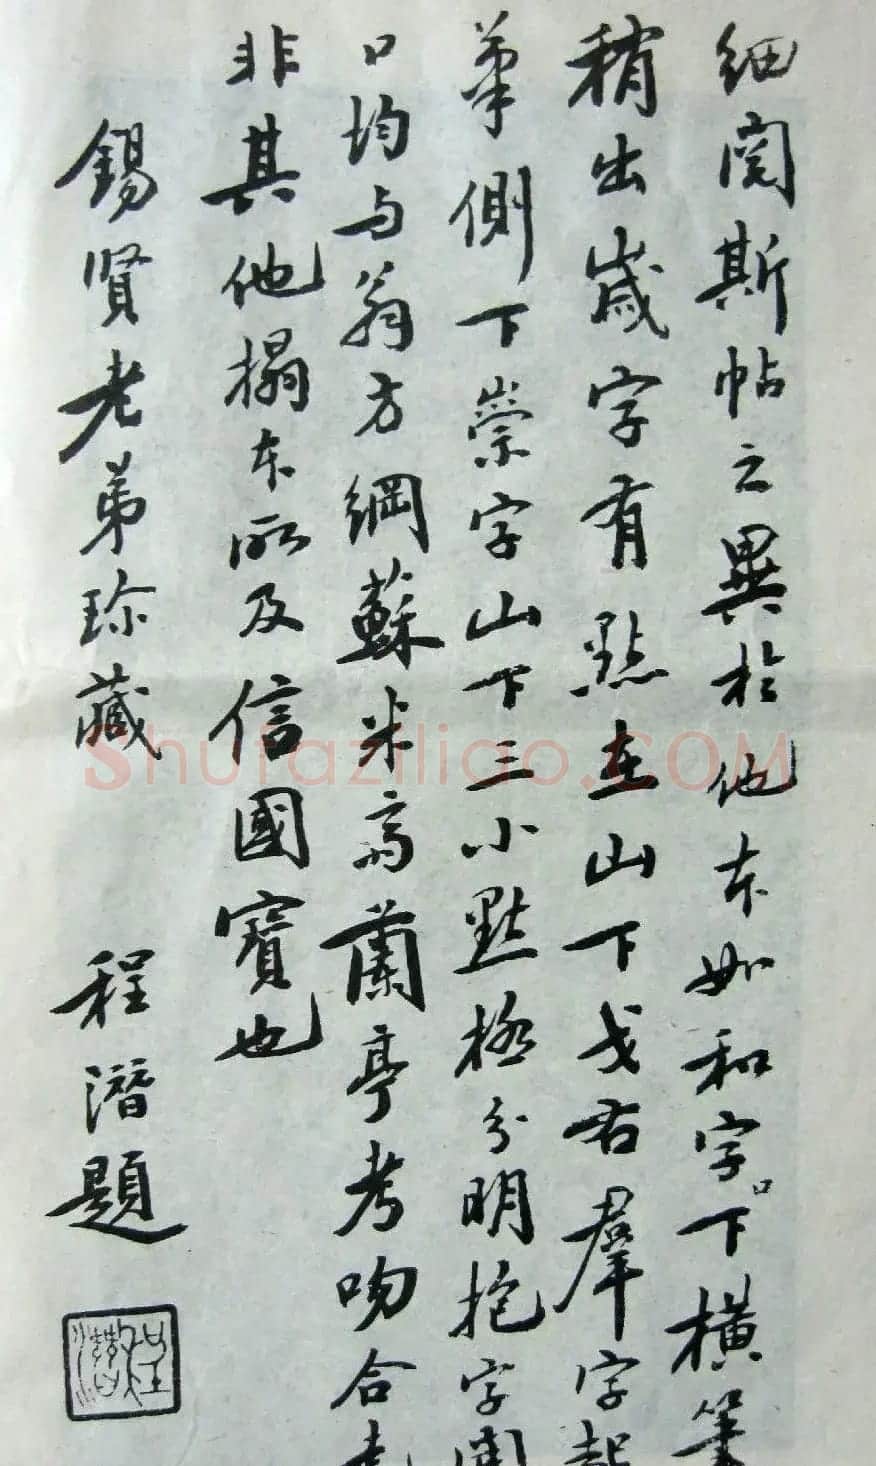 细阅斯帖之異於他本如和字口下橫筆
稍出歲字有點在山下戈右羣字起
筆側下崇字山下三小點極分明抱字開
口均与翁方綱蘇米齋蘭亭考吻合
非其他搨本所及信國寶也
錫賢老弟珍藏
程潛題
程潛
Shufaziliao.COM